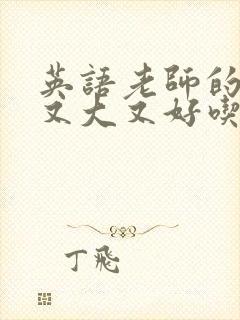 英語老師的
又大又好喫
丁飛